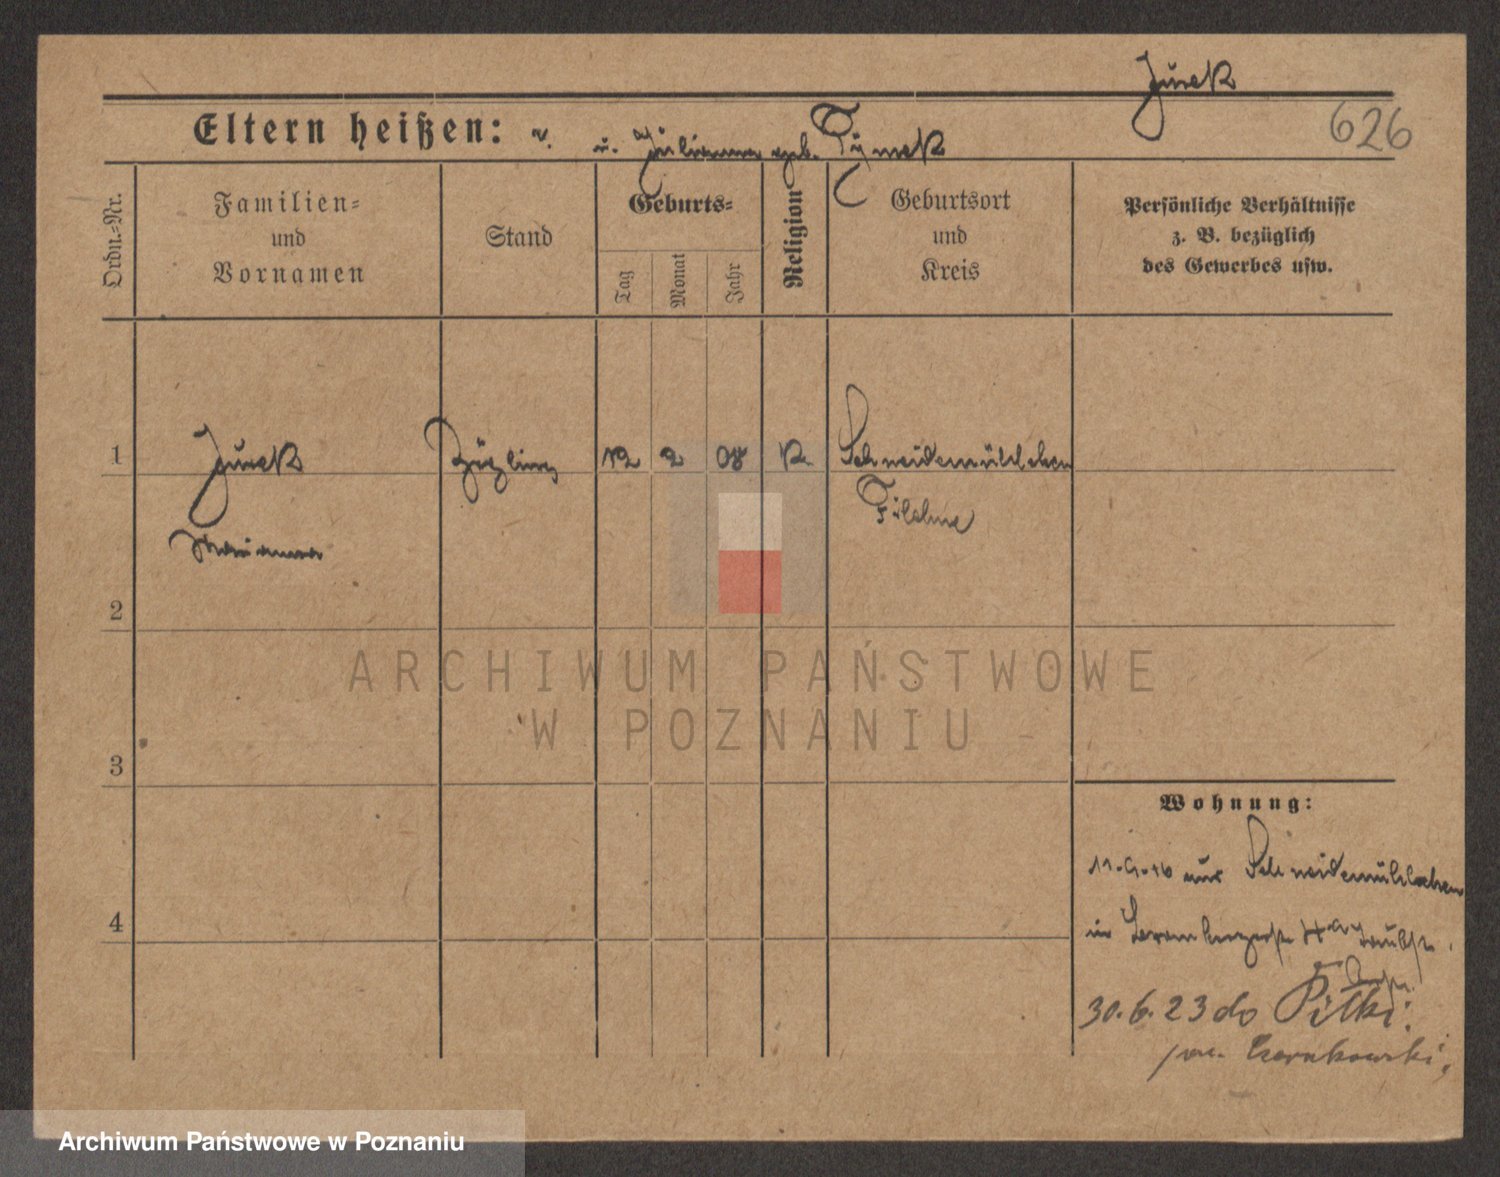 Jurek
626
Eltern heißen: v. u. Julianna geb. Tymek
Ordn.-Nr.
Familien-
und
Vornamen
Stand
Geburts-
Tag
Monat
Jahr
Religion
Geburtsort
und
Kreis
Persönliche Verhältnisse
z. B. bezüglich
des Gewerbes usw.
1
Jurek
Zögling
12
2
08
K.
Schneidemühlchen
Filehne
Marianna
2
ARCHIWUM PAŃSTWOWE
W POZNANIU
3
Wohnung:
aus Schneidemühlchen
in
4
30.6.23 do Piłki
pow. Czarnkowski,
Archiwum Państwowe w Poznaniu